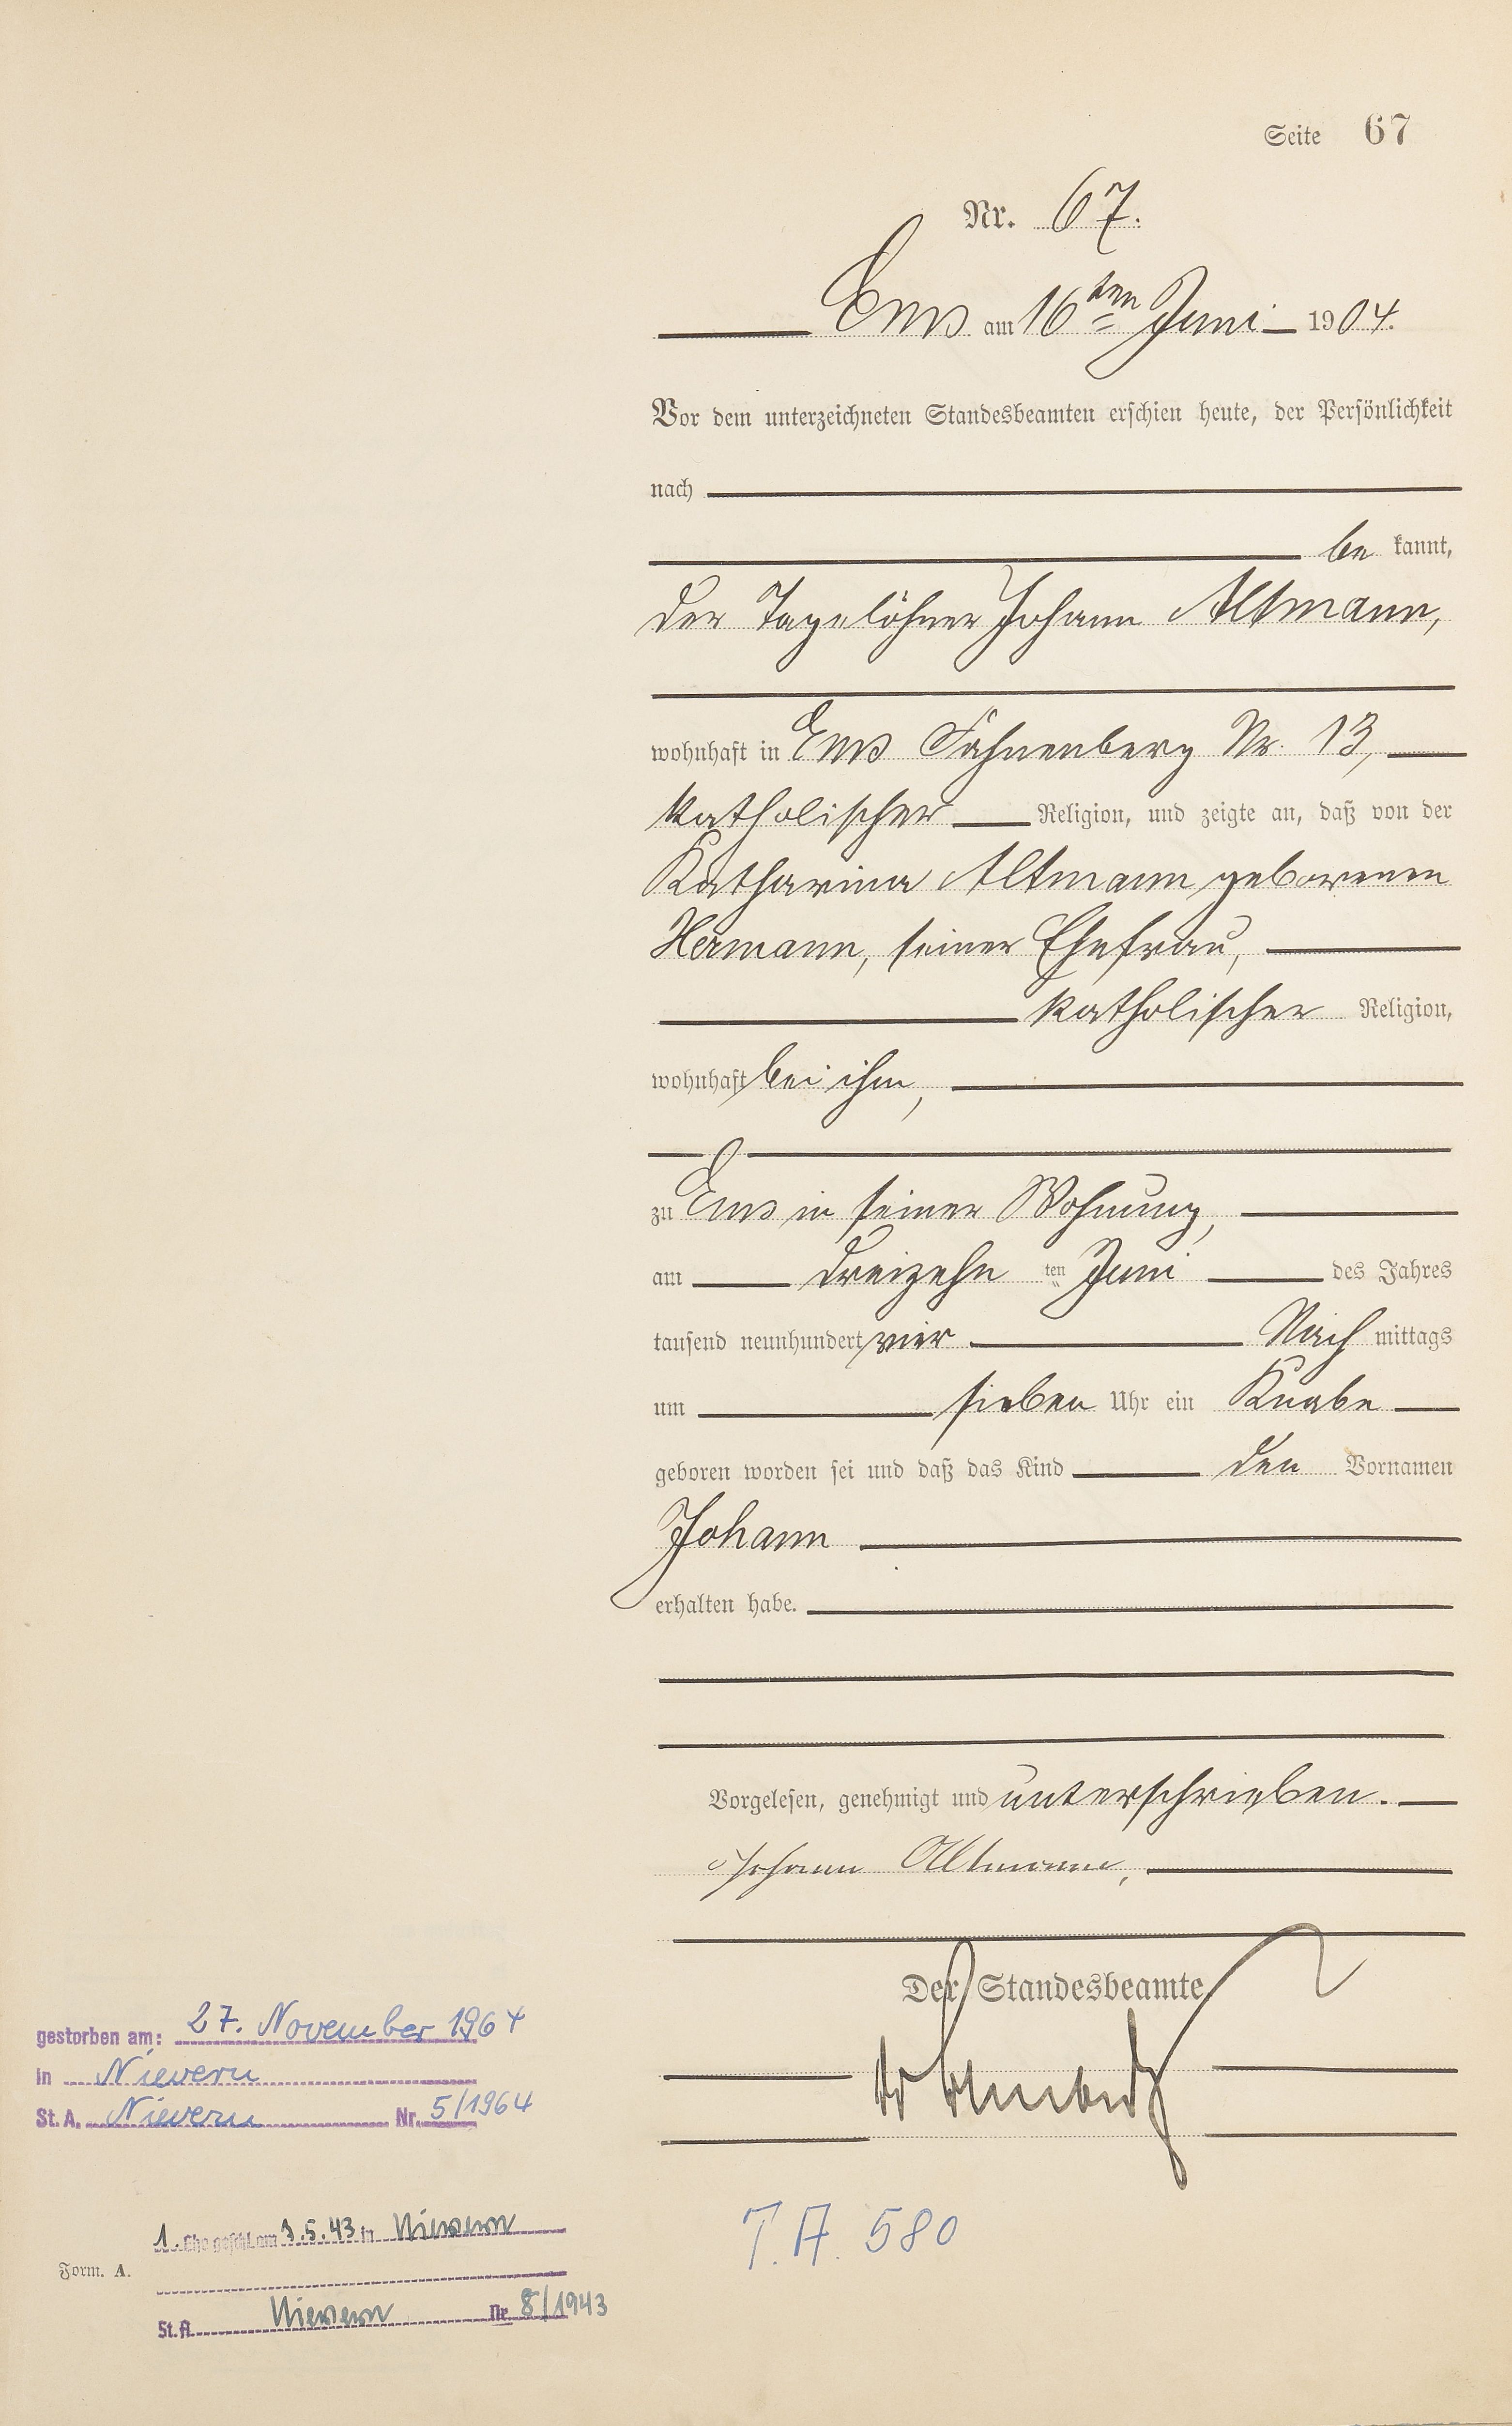 Seite 67
Nr. 67.
Ems am 16ten Juni 1904.
Vor dem unterzeichneten Standesbeamten erschien heute, der Persönlichkeit
nach
be kannt,
der Tagelöhner Johann Altmann,
wohnhaft in Ems Fahnenberg Nr. 13,
katholischer Religion, und zeigte an, daß von der
Katharina Altmann geborenen
Hermann, seiner Ehefrau,
katholischer Religion,
wohnhaft bei ihm,
zu Ems in seiner Wohnung,
am dreizehn ten Juni des Jahres
tausend neunhundert vier Nach mittags
um sieben Uhr ein Knabe
geboren worden sei und daß das Kind den Vornamen
Johann
erhalten habe.
Vorgelesen, genehmigt und unterschrieben.
Johann Altmann,
Der Standesbeamte
gestorben am: 27. November 1964
in Nievern
St. A. Nievern Nr. 5/1964
1. Ehe geschl. am 3.5.43 in Nievern
Form. A.
St. A. Nievern Nr 8/1943
T. A. 580